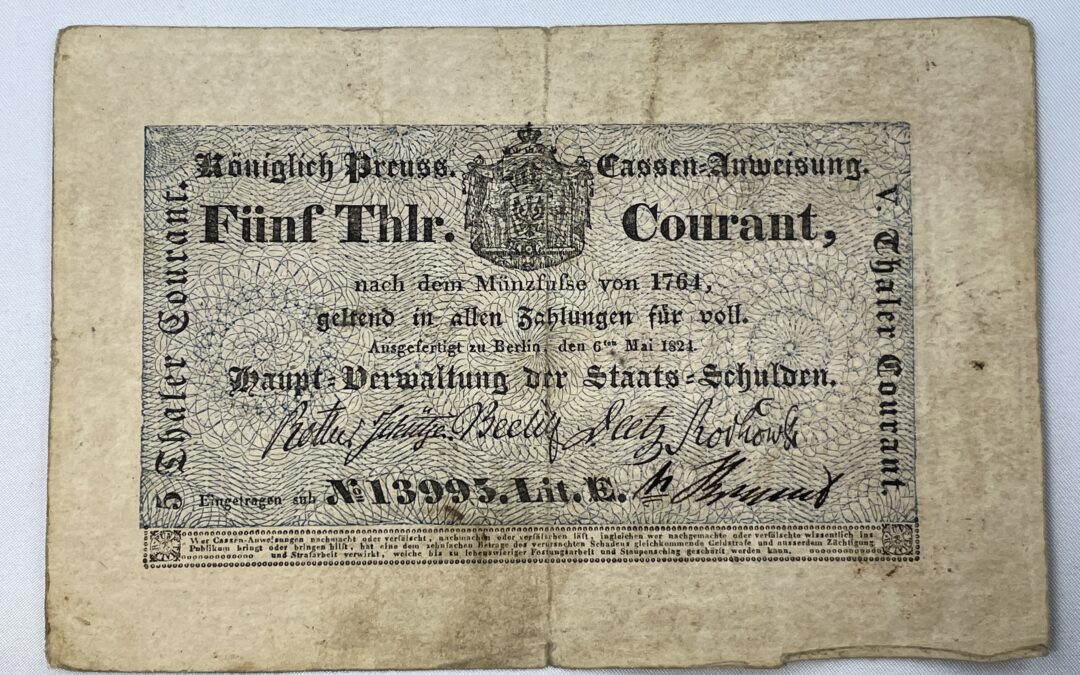 Königlich Preuss. Cassen-Anweisung.
Fünf Thlr. Courant,
nach dem Münzfuſse von 1764,
geltend in allen Zahlungen für voll.
Ausgefertigt zu Berlin, den 6ten Mai 1824.
Haupt-Verwaltung der Staats-Schulden.
Rother Schütze Beelitz Deetz Rochow
Eingetragen sub No. 13995. Lit. E.
5 Thaler Courant.
V. Thaler Courant.
Wer Cassen-Anweisungen nachmacht oder verfälscht, nachmachen oder verfälschen läſt, ingleichen wer nachgemachte oder verfälschte wissentlich ins
Publikum bringt oder bringen hilft, hat eine dem zehnfachen Betrage des verursachten Schadens gleichkommende Geldstrafe und ausserdem Züchtigung
und Strafarbeit verwirkt, welche bis zu lebenswieriger Festungsarbeit und Staupenschlag geschärft werden kann.